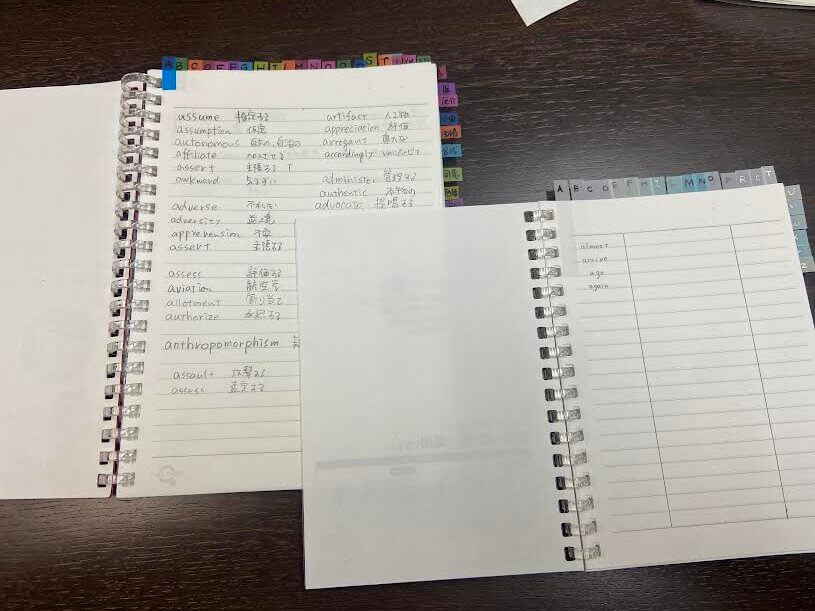 A B C D E F G H I L M N O S T
assume 推定する
assumption 仮定
autonomous 自治の, 自治的
affiliate 加入させる
assert 主張する
awkward 気まずい
adverse 不利な
adversity 逆境
apprehension 不安
assert 主張する
assess 評価する
aviation 航空学
allotment 割り当て
authorize 公認する
anthropomorphism
assault 攻撃する
assess 査定する
artifact 人工物
appreciation 評価
arrogant
accordingly
administer 管理する
authentic 本物の
advocate 提唱する
A B C D E F H I L M N O P R S T
almost
arrive
age
again